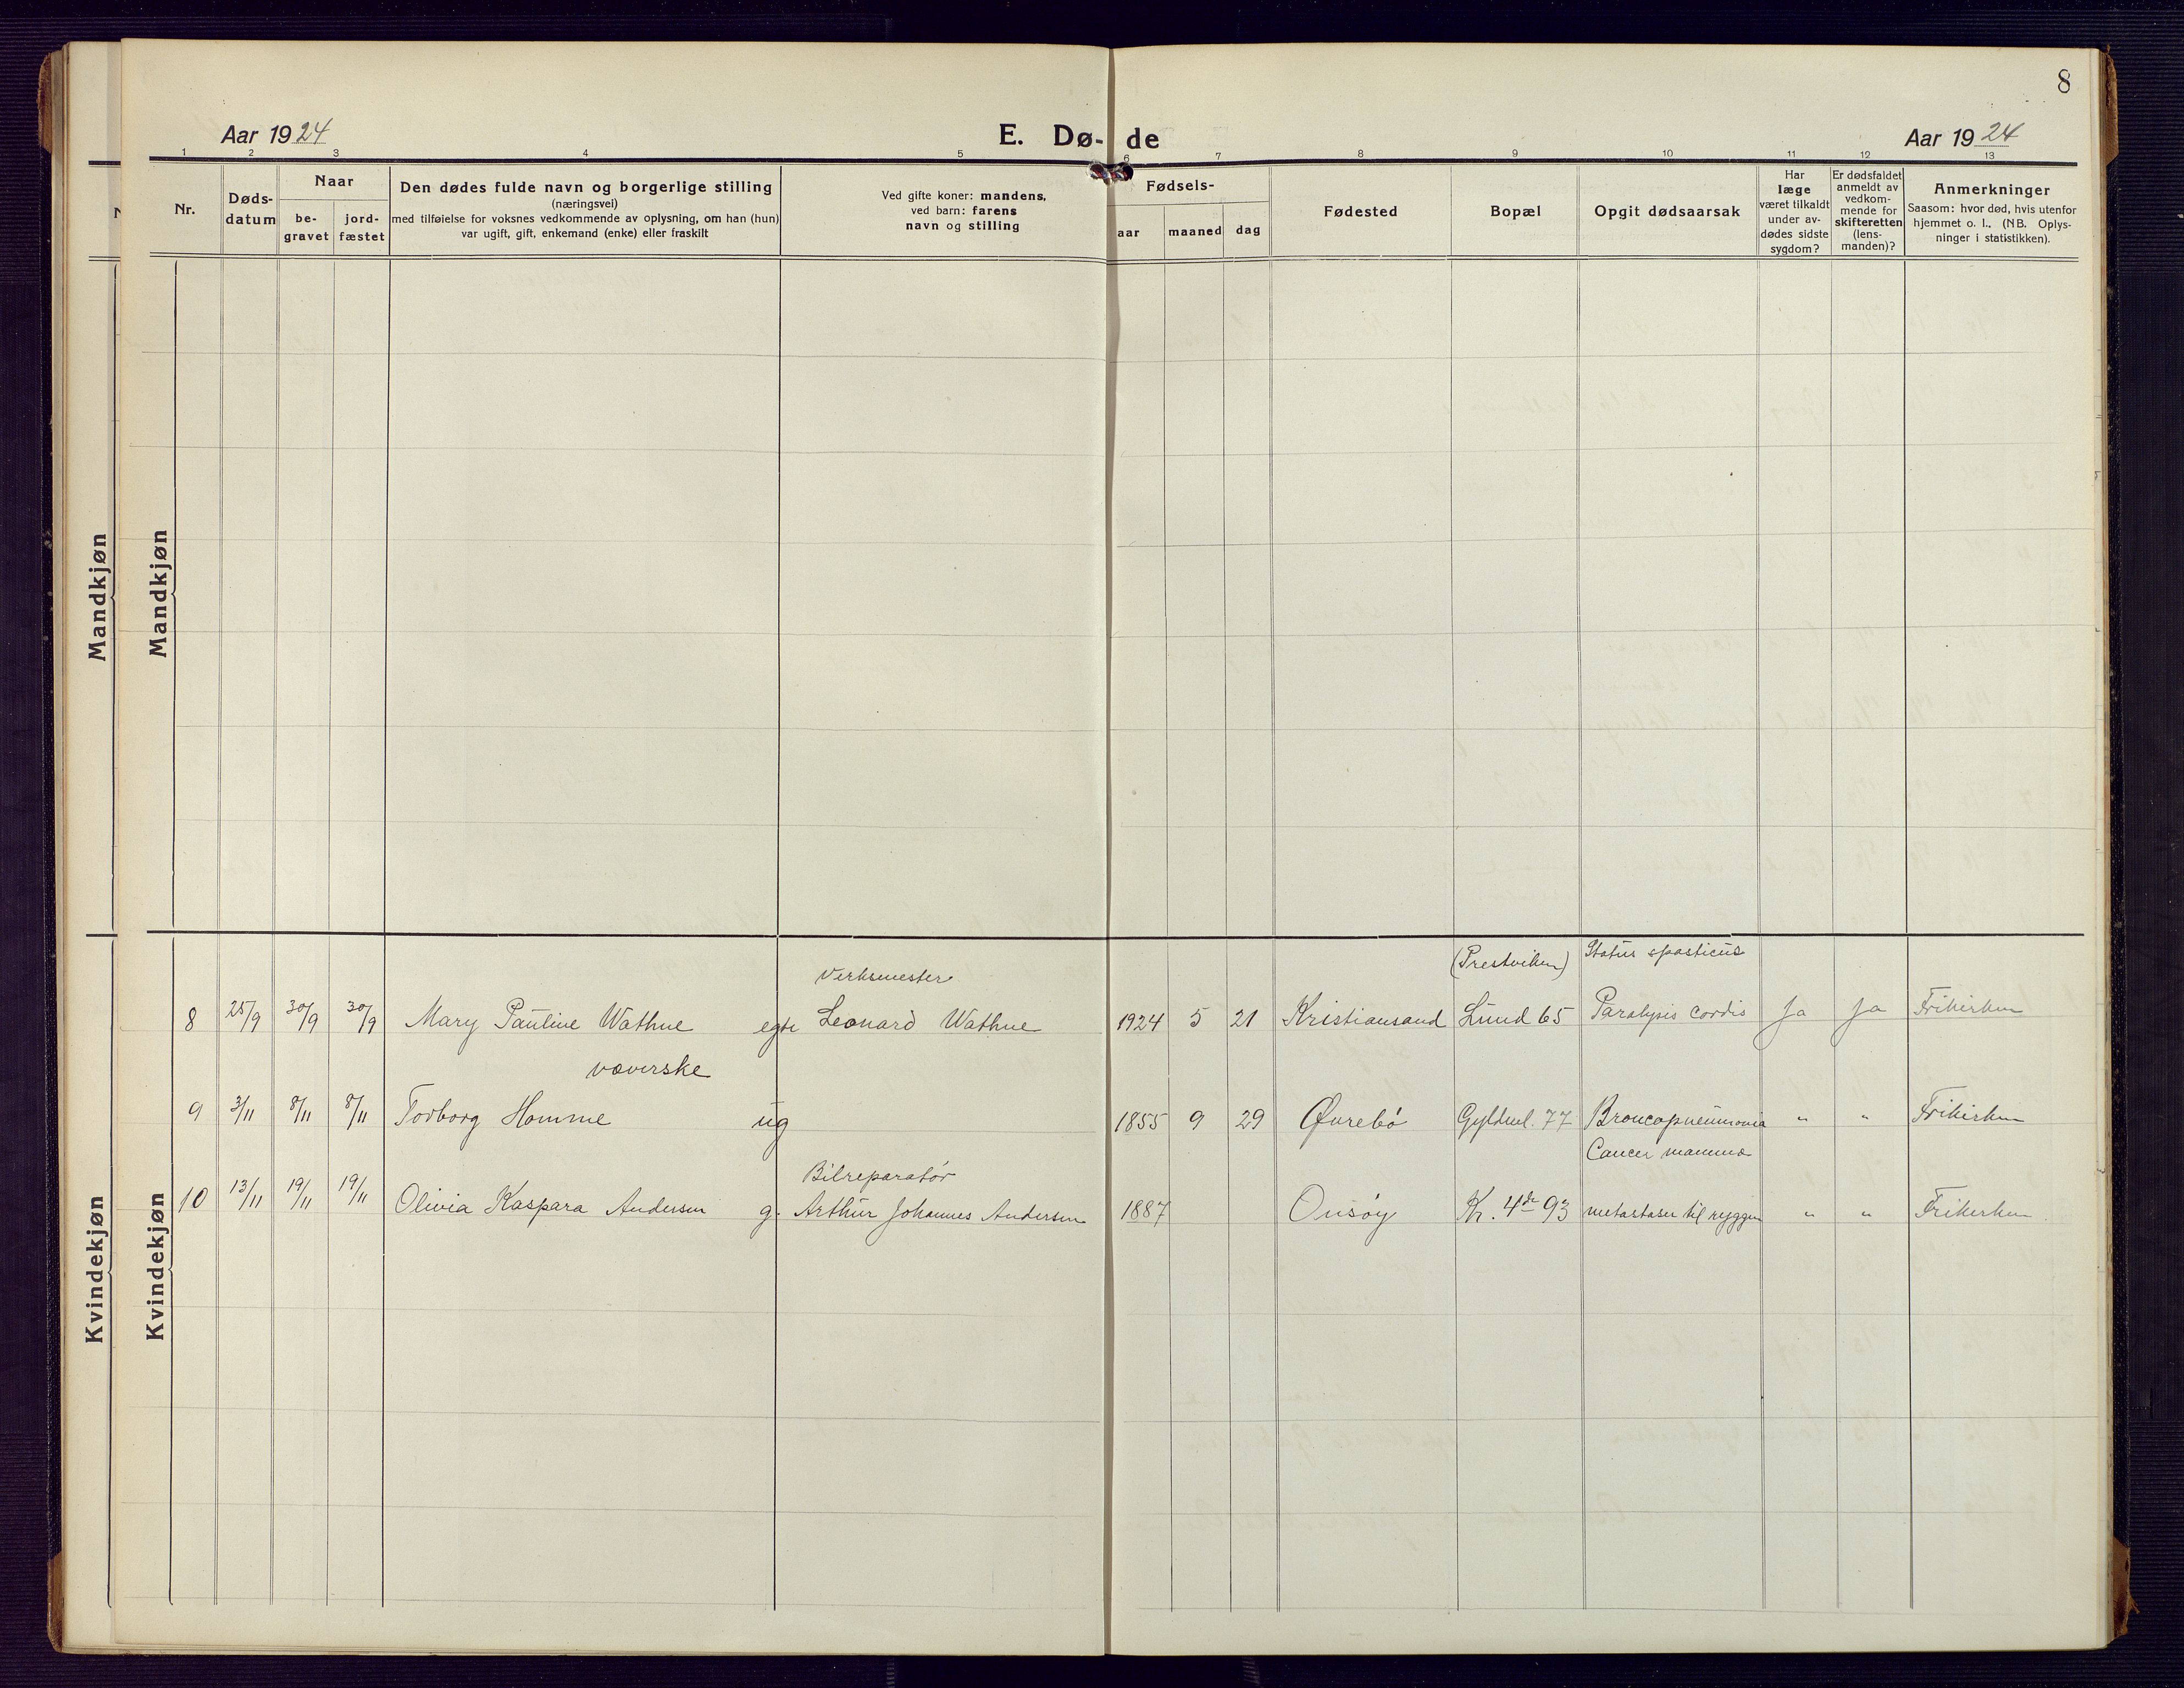 8
Aar 1924
E. Dø- de
Aar 1924
1 2 3 4 5 6 7 8 9 10 11 12 13
Nr.
Døds-
datum
Naar
be-
gravet
jord-
fæstet
Den dødes fulde navn og borgerlige stilling
(næringsvei)
med tilføielse for voksnes vedkommende av oplysning, om han (hun)
var ugift, gift, enkemand (enke) eller fraskilt
Ved gifte koner: mandens,
ved barn: farens
navn og stilling
Fødsels-
aar
maaned
dag
Fødested
Bopæl
Opgit dødsaarsak
Har
læge
været tilkaldt
under av-
dødes sidste
sygdom?
Er dødsfaldet
anmeldt av
vedkom-
mende for
skifteretten
(lens-
manden)?
Anmerkninger
Saasom: hvor død, hvis utenfor
hjemmet o. l., (NB. Oplys-
ninger i statistikken).
N
Mandkjøn
Mandkjøn
Kvindekjøn
Kvindekjøn
Verksmester (Prestviken) Status spasticus
8 25/9 30/9 30/9 Mary Pauline Wathne egte Leonard Wathne 1924 5 21 Kristiansand Lund 65 Paralysis cordis Ja Ja Frikirken
væverske
9 3/11 8/11 8/11 Torborg Homme ug 1855 9 29 Øvrebø Gyldenl. 77 Broncopneumonia " " Frikirken
Bilreparatør Cancer mammæ
10 13/11 19/11 19/11 Olivia Kaspara Andersen g. Arthur Johannes Andersen 1887 Onsøy Kr. 4de 93 metastaser til ryggen " " Frikirken